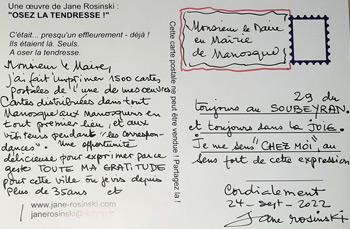 Une œuvre de Jane Rosinski :
"OSEZ LA TENDRESSE !"
C'était... presqu'un effleurement - déjà !
Ils étaient là. Seuls.
A oser la tendresse.
Monsieur le Maire,
j'ai fait imprimer 1500 cartes
Postales de l'une de mes œuvres
Cartes distribuées dans tout
Manosque aux manosquins en
tout premier lieu, et aux
visiteurs pendant "les correspon-
dances". Une opportunité
délicieuse pour exprimer par ce
geste TOUTE MA GRATITUDE
pour cette ville où je vis depuis
Plus de 35 ans et
www.jane-rosinski.com
janerosinski@
Cette carte postale ne peut être vendue ! Partagez la !
Monsieur le Maire
en Mairie
de Manosque
29 du
toujours au SOUBEYRAN.
et toujours dans la JOIE.
Je me sens "CHEZ MOI", au
sens fort de cette expression
Cordialement
24 - sept - 2022
Jane rosinski